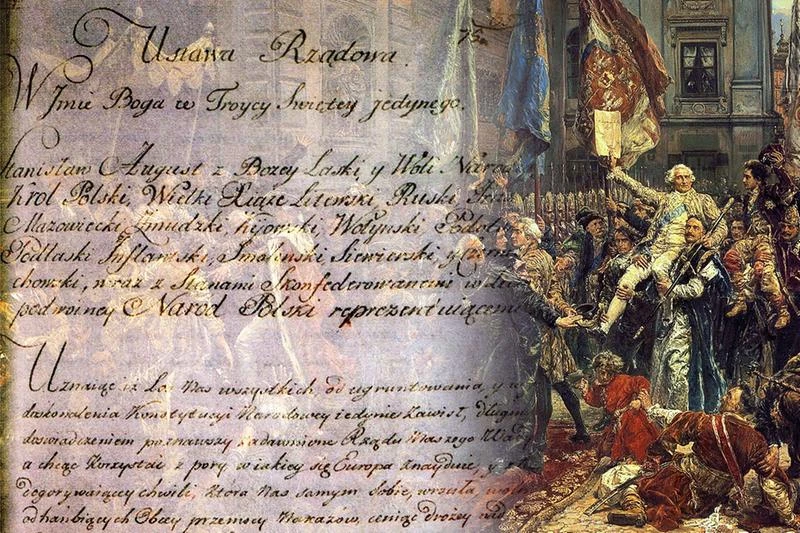 Ustawa Rządowa.
W Jmie Boga w Troycy Swiętey jedynego.
Stanisław August z Bozey Łaski y Woli Narodu
Krol Polski, Wielki Xiąze Litewski, Ruski
Mazowiecki, Zmudzki, Kijowski, Wołynski, Podol
Podlaski Inflantski, Smolenski Siewierski, y Czernie
chowski, wraz z Stanami Skonfederowanemi w licz
podwoyney Narod Polski reprezentuiącemi
Uznaiąc iz Los Nas wszystkich, od ugruntowania, y w
doskonalenia Konstytucyi Narodowey iedynie zawisł, długim
doswiadczeniem poznawszy zadawnione Rządu Naszego Wady
a chcąc korzystać z pory w iakiey się Europa znayduie, y z t
dogorywaiącey chwili, która Nas samym Sobie, wrociła, wol
od hanbiących Obcey przemocy Nakazów, ceniąc drozey nad